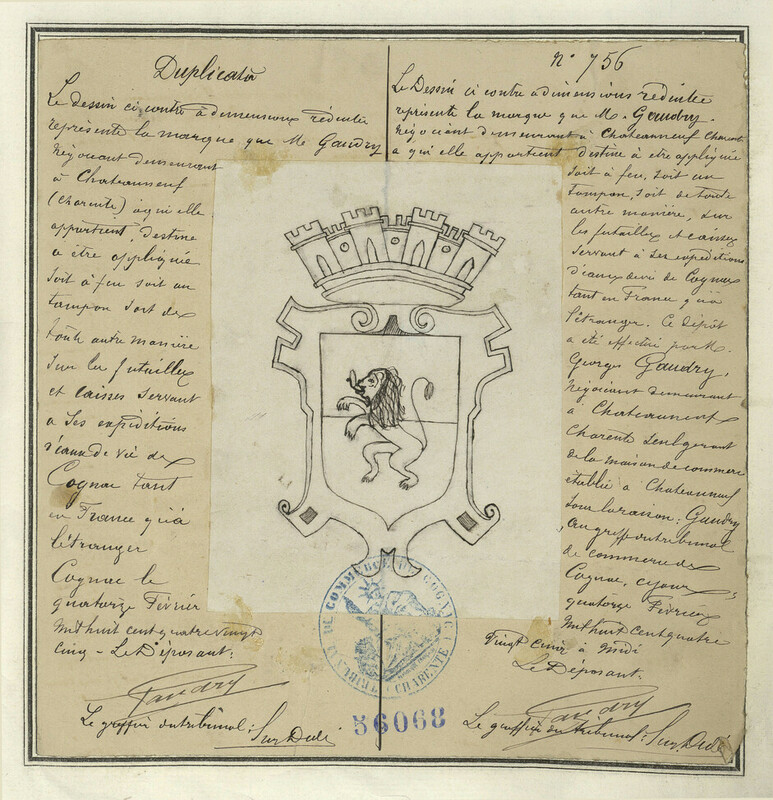 Duplicata
Le dessin ci contre à dimensions réduites
représente la marque que Mr Gaudry
Négociant demeurant
à Chateauneuf
(Charente) à qui elle
appartient, destine
a être appliquée
soit à feu soit au
tampon soit de
toute autre manière
sur les futailles
et caisses servant
a ses expéditions
d'eaux de vie de
Cognac tant
en France qu'à
l'étranger
Cognac le
quatorze Février
mil huit cent quatre vingt
cinq - Le Déposant:
Gaudry
Le greffier du tribunal:
n° 756
Le Dessin ci contre à dimensions réduites
représente la marque que M. Gaudry.
Négociant demeurant à Chateauneuf Charente
a qui elle appartient destine à être appliquée
soit à feu, soit au
tampon, soit de toute
autre manière, sur
les futailles et caisses
servant à ses expéditions
d'eaux de vie de Cognac
tant en France qu'à
l'étranger. Ce dépôt
a été effectué par M.
Georges Gaudry,
Négociant demeurant
à Chateauneuf
Charente seul gérant
de la maison de commerce
établie à Chateauneuf
sous la raison: Gaudry
au greffe du tribunal
de commerce de
Cognac, ce jour
quatorze Février
mil huit cent quatre
vingt cinq à midi
Le Déposant.
Gaudry
Le greffier du tribunal:
TRIBUNAL DE COMMERCE DE COGNAC
CHARENTE
56068